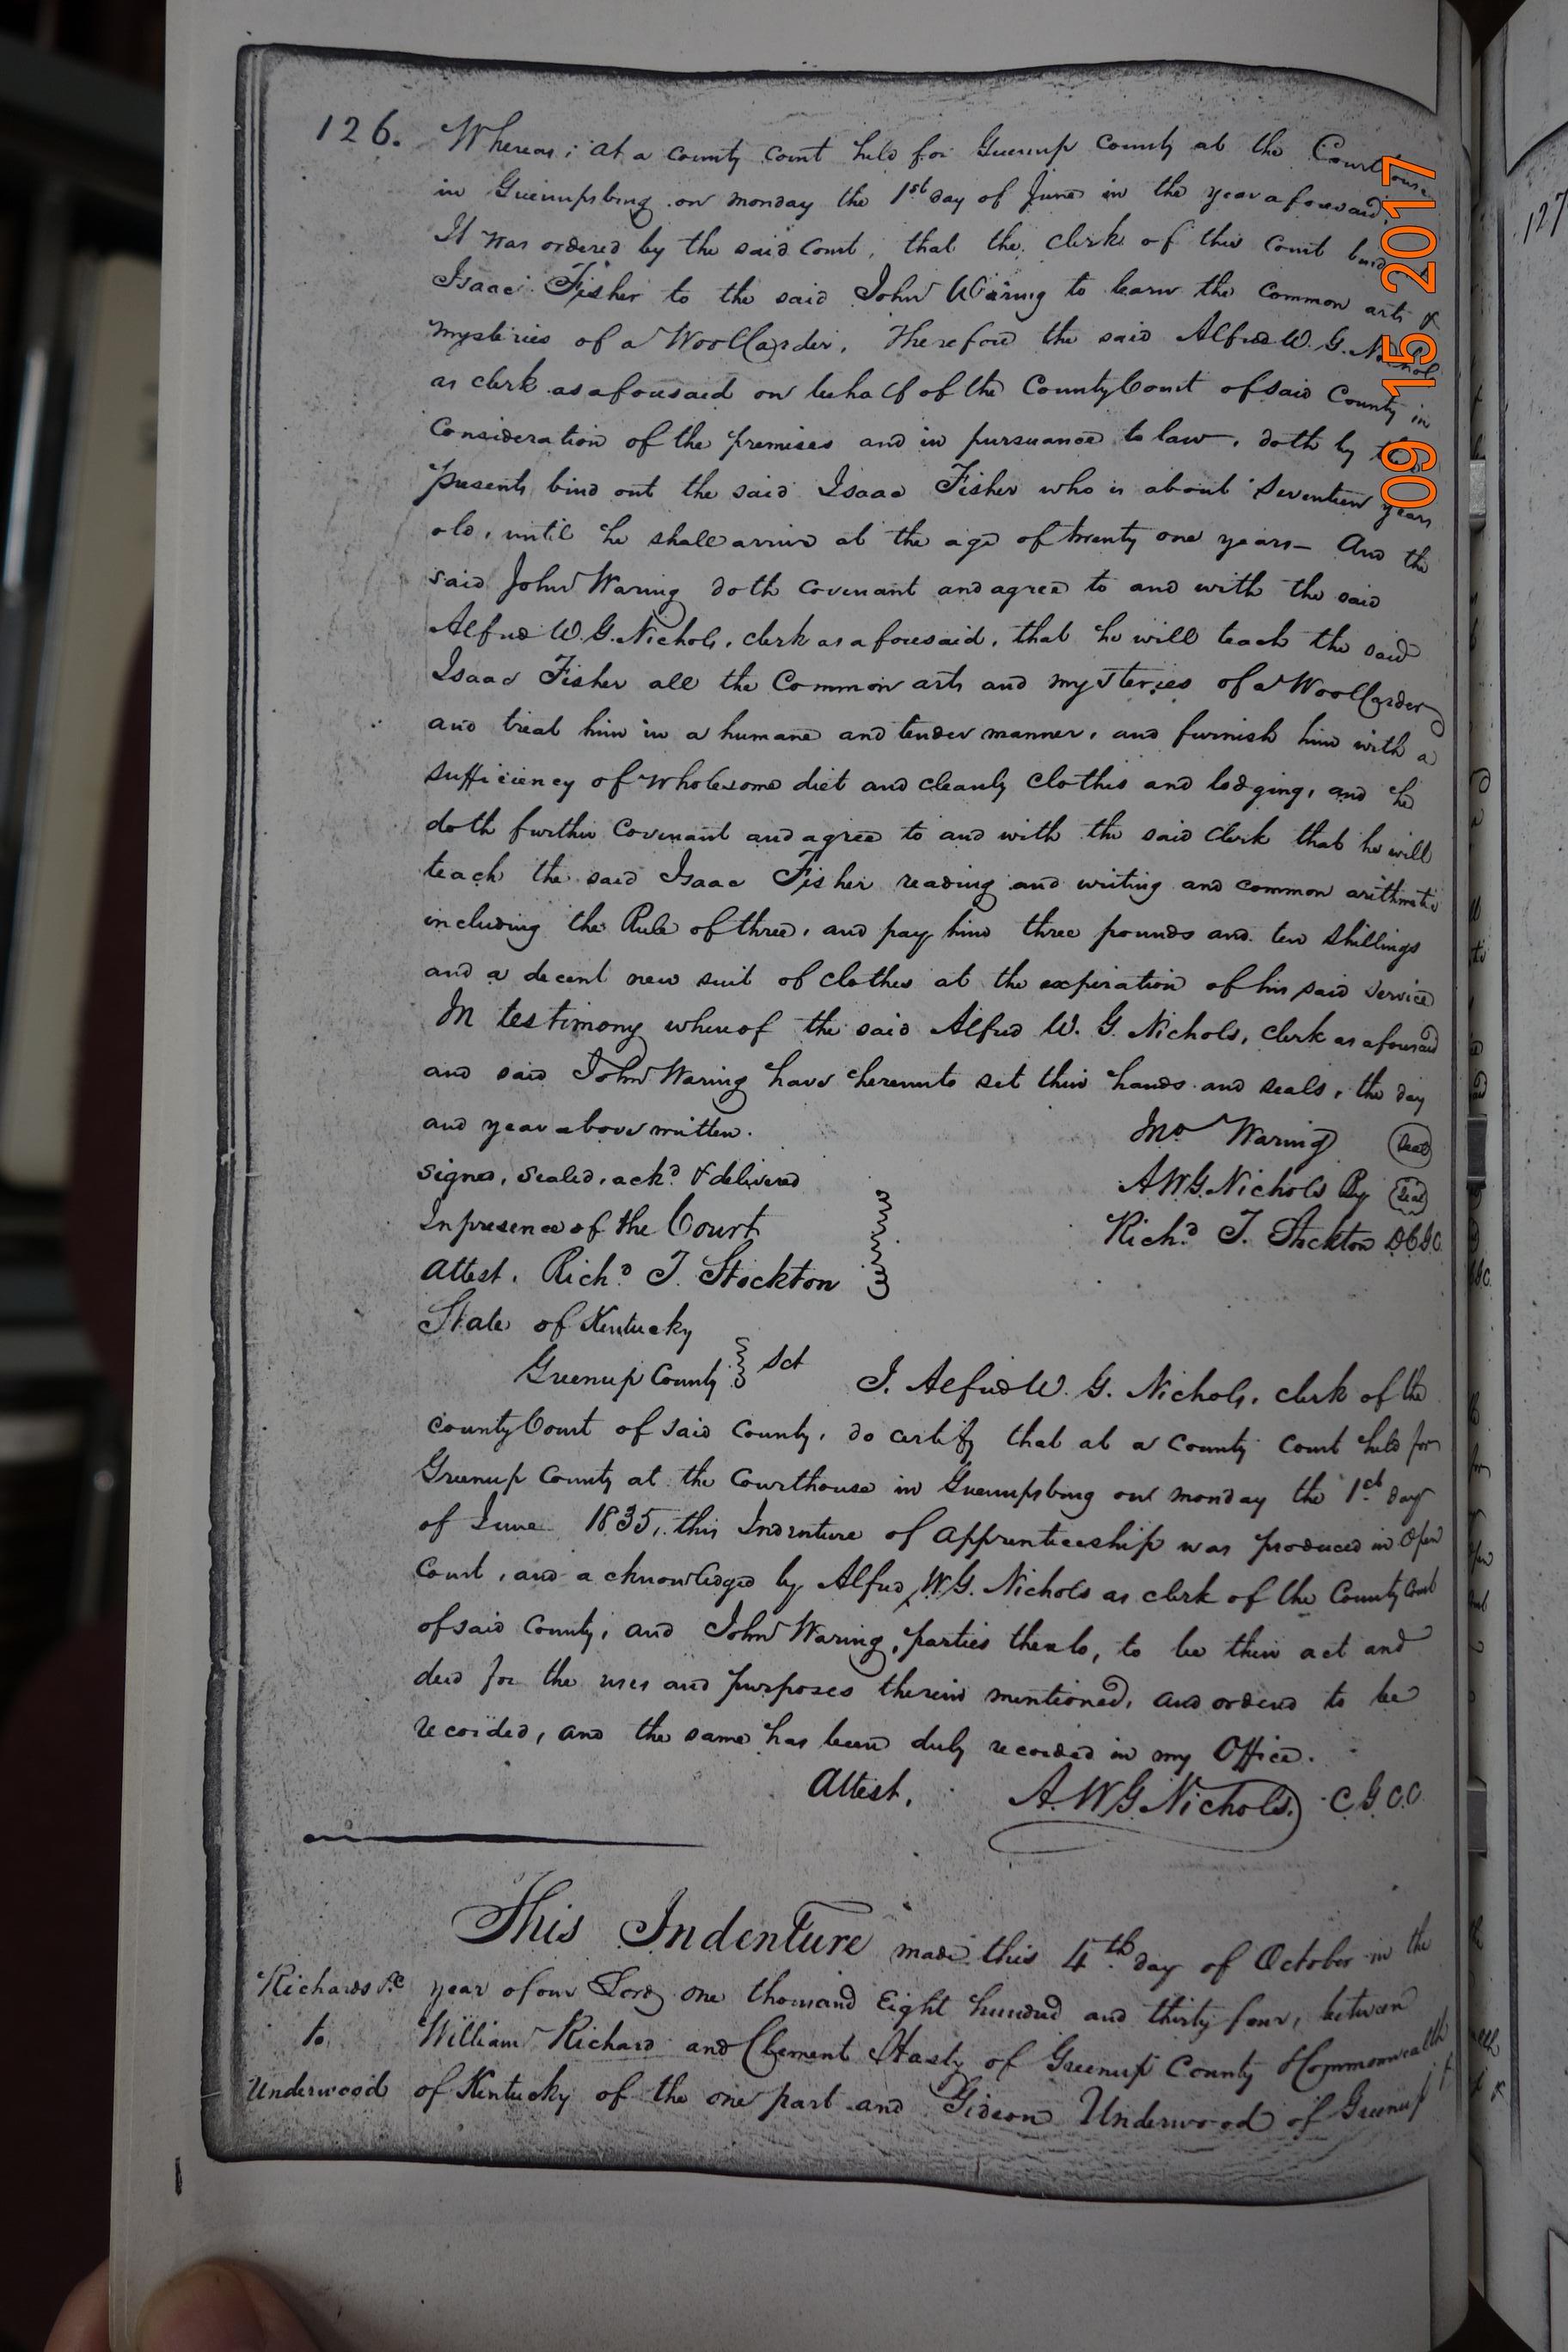 126. Whereas; at a county court held for Greenup County at the Courthouse
in Greenupsburg on monday the 1st day of June in the year aforesaid,
It was ordered by the said court, that the clerk of this court bind
Isaac Fisher to the said John Waring to learn the common arts &
mysteries of a WoolCarder. Therefore the said Alfred W. G. Nichols
as clerk as aforesaid on behalf of the County Court of said County in
Consideration of the premises and in pursuance to law, doth by
presents, bind out the said Isaac Fisher who is about Seventeen years
old, until he shall arrive at the age of twenty one years— And the
said John Waring doth covenant and agree to and with the said
Alfred W. G. Nichols, clerk as aforesaid, that he will teach the said
Isaac Fisher all the Common arts and mysteries of a WoolCarder
and treat him in a humane and tender manner, and furnish him with a
sufficiency of wholesome diet and cleanly clothes and lodging, and he
doth further Covenant and agree to and with the said Clerk that he will
teach the said Isaac Fisher reading and writing and common arithmetic
including the Rule of three, and pay him three pounds and ten shillings
and a decent new suit of clothes at the expiration of his said service
In testimony whereof the said Alfred W. G. Nichols, Clerk as aforesaid
and said John Waring have hereunto set their hands and seals, the day
and year above written.
Jno Waring Seal
signed, sealed, ackd & delivered
AWG. Nichols By Seal
In presence of the Court
Richd. T. Stockton D.C.G.C.
Attest. Richd. T. Stockton
State of Kentucky
Greenup County } Sct I. Alfred W. G. Nichols, clerk of the
county Court of said County, do certify that at a County Court held for
Greenup County at the Courthouse in Greenupsburg on monday the 1st. day
of June 1835, this Indenture of apprenticeship was produced in Open
Court, and acknowledged by Alfred W. G. Nichols as clerk of the County Court
of said County, and John Waring, parties thereto, to be their act and
deed for the uses and purposes therein mentioned, and ordered to be
recorded, and the same has been duly recorded in my Office.
Attest, A. W G. Nichols. C G C C
This Indenture made this 4th. day of October in the
Richards &c year of our Lord one thousand Eight hundred and thirty four, between
to William Richard and Clement Hasty of Greenup County & Commonwealth
Underwood of Kentucky of the one part and Gideon Underwood of Greenup
09 15 2017
127